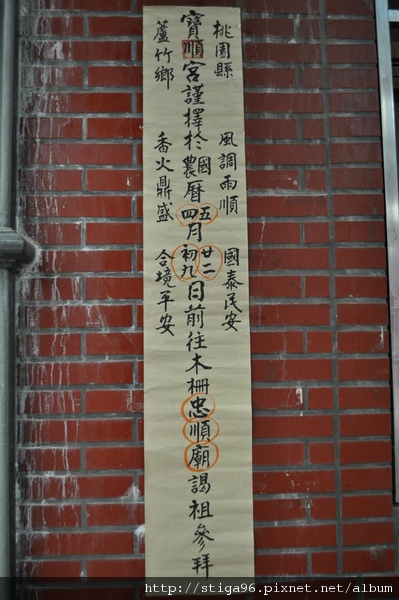 桃園縣 風調雨順 國泰民安
寶順宮謹擇於國農曆五四月廿二初九日前往木柵忠順廟謁祖參拜
蘆竹鄉 香火鼎盛 合境平安
http://stiga96.pixnet.net/album